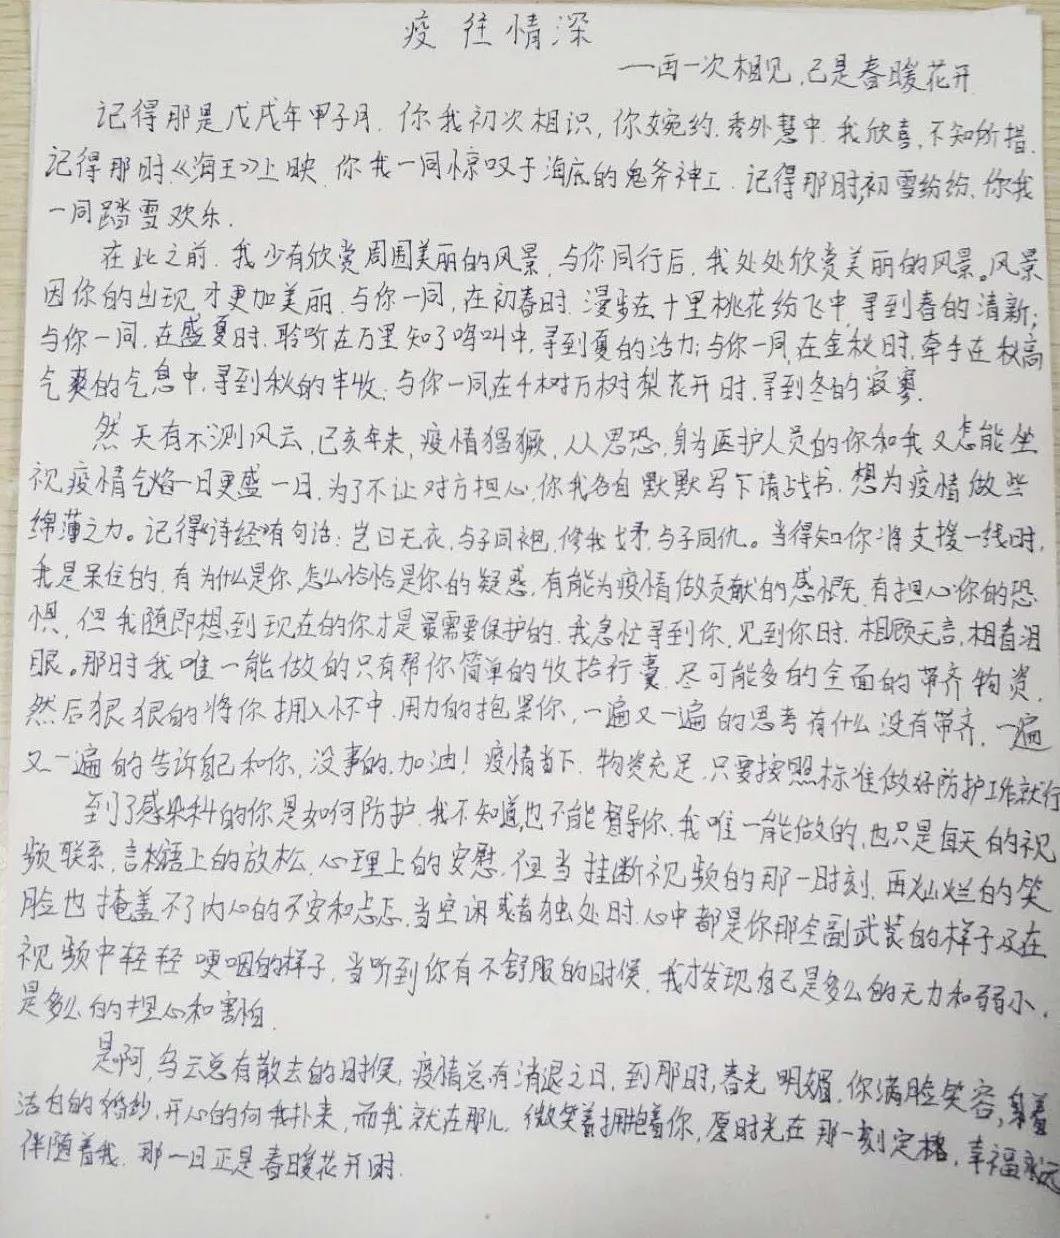 疫往情深
——再一次相见,已是春暖花开
记得那是戊戌年甲子月.你我初次相识,你婉约.秀外慧中.我欣喜,不知所措.
记得那时.《海王》上映.你我一同惊叹于海底的鬼斧神工.记得那时,初雪纷纷.你我
一同踏雪欢乐.
在此之前.我少有欣赏周围美丽的风景,与你同行后,我处处欣赏美丽的风景。风景
因你的出现,才更加美丽.与你一同,在初春时.漫步在十里桃花纷飞中,寻到春的清新;
与你一同.在盛夏时.聆听在万里知了鸣叫中,寻到夏的活力;与你一同,在金秋时,牵手在秋高
气爽的气息中,寻到秋的丰收;与你一同,在千树万树梨花开时,寻到冬的寂寥.
然天有不测风云,己亥年末,疫情猖獗,人人思恐.身为医护人员的你和我又怎能坐
视疫情气焰一日更盛一日.为了不让对方担心.你我各自默默写下请战书.想为疫情做些
绵薄之力。记得《诗经》有句话:岂曰无衣,与子同袍,修我戈矛,与子同仇。当得知你将支援一线时,
我是呆住的,有为什么是你,怎么恰恰是你的疑惑,有能为疫情做贡献的感慨,有担心你的恐
惧,但我随即想到现在的你才是最需要保护的.我急忙寻到你,见到你时.相顾无言,相看泪
眼。那时我唯一能做的只有帮你简单的收拾行囊.尽可能多的全面的带齐物资,
然后狠狠的将你拥入怀中.用力的抱紧你,一遍又一遍的思考有什么没有带齐,一遍
又一遍的告诉自己和你,没事的.加油!疫情当下.物资充足,只要按照标准做好防护工作就行
到了感染科的你是如何防护.我不知道,也不能督导你.我唯一能做的,也只是每天的视
频联系,言语上的放松,心理上的安慰.但当挂断视频的那一时刻.再灿烂的笑
脸也掩盖不了内心的不安和忐忑.当空闲或者独处时.心中都是你那全副武装的样子及在
视频中轻轻哽咽的样子.当听到你有不舒服的时候.我才发现自己是多么的无力和弱小,
是多么的担心和害怕.
是啊,乌云总有散去的时候,疫情总有消退之日,到那时,春光明媚.你满脸笑容,身着
洁白的婚纱,开心的向我扑来,而我就在那儿.微笑着拥抱着你,愿时光在那一刻定格,幸福永远
伴随着我.那一日正是春暖花开时.